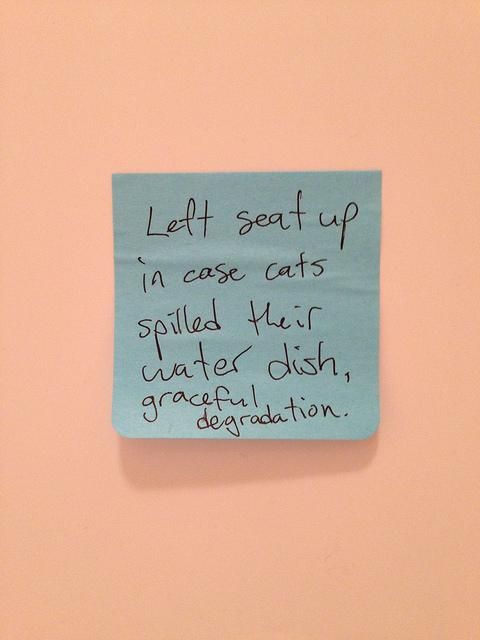 Left seat up
in case cats
spilled their
water dish,
graceful
degradation.